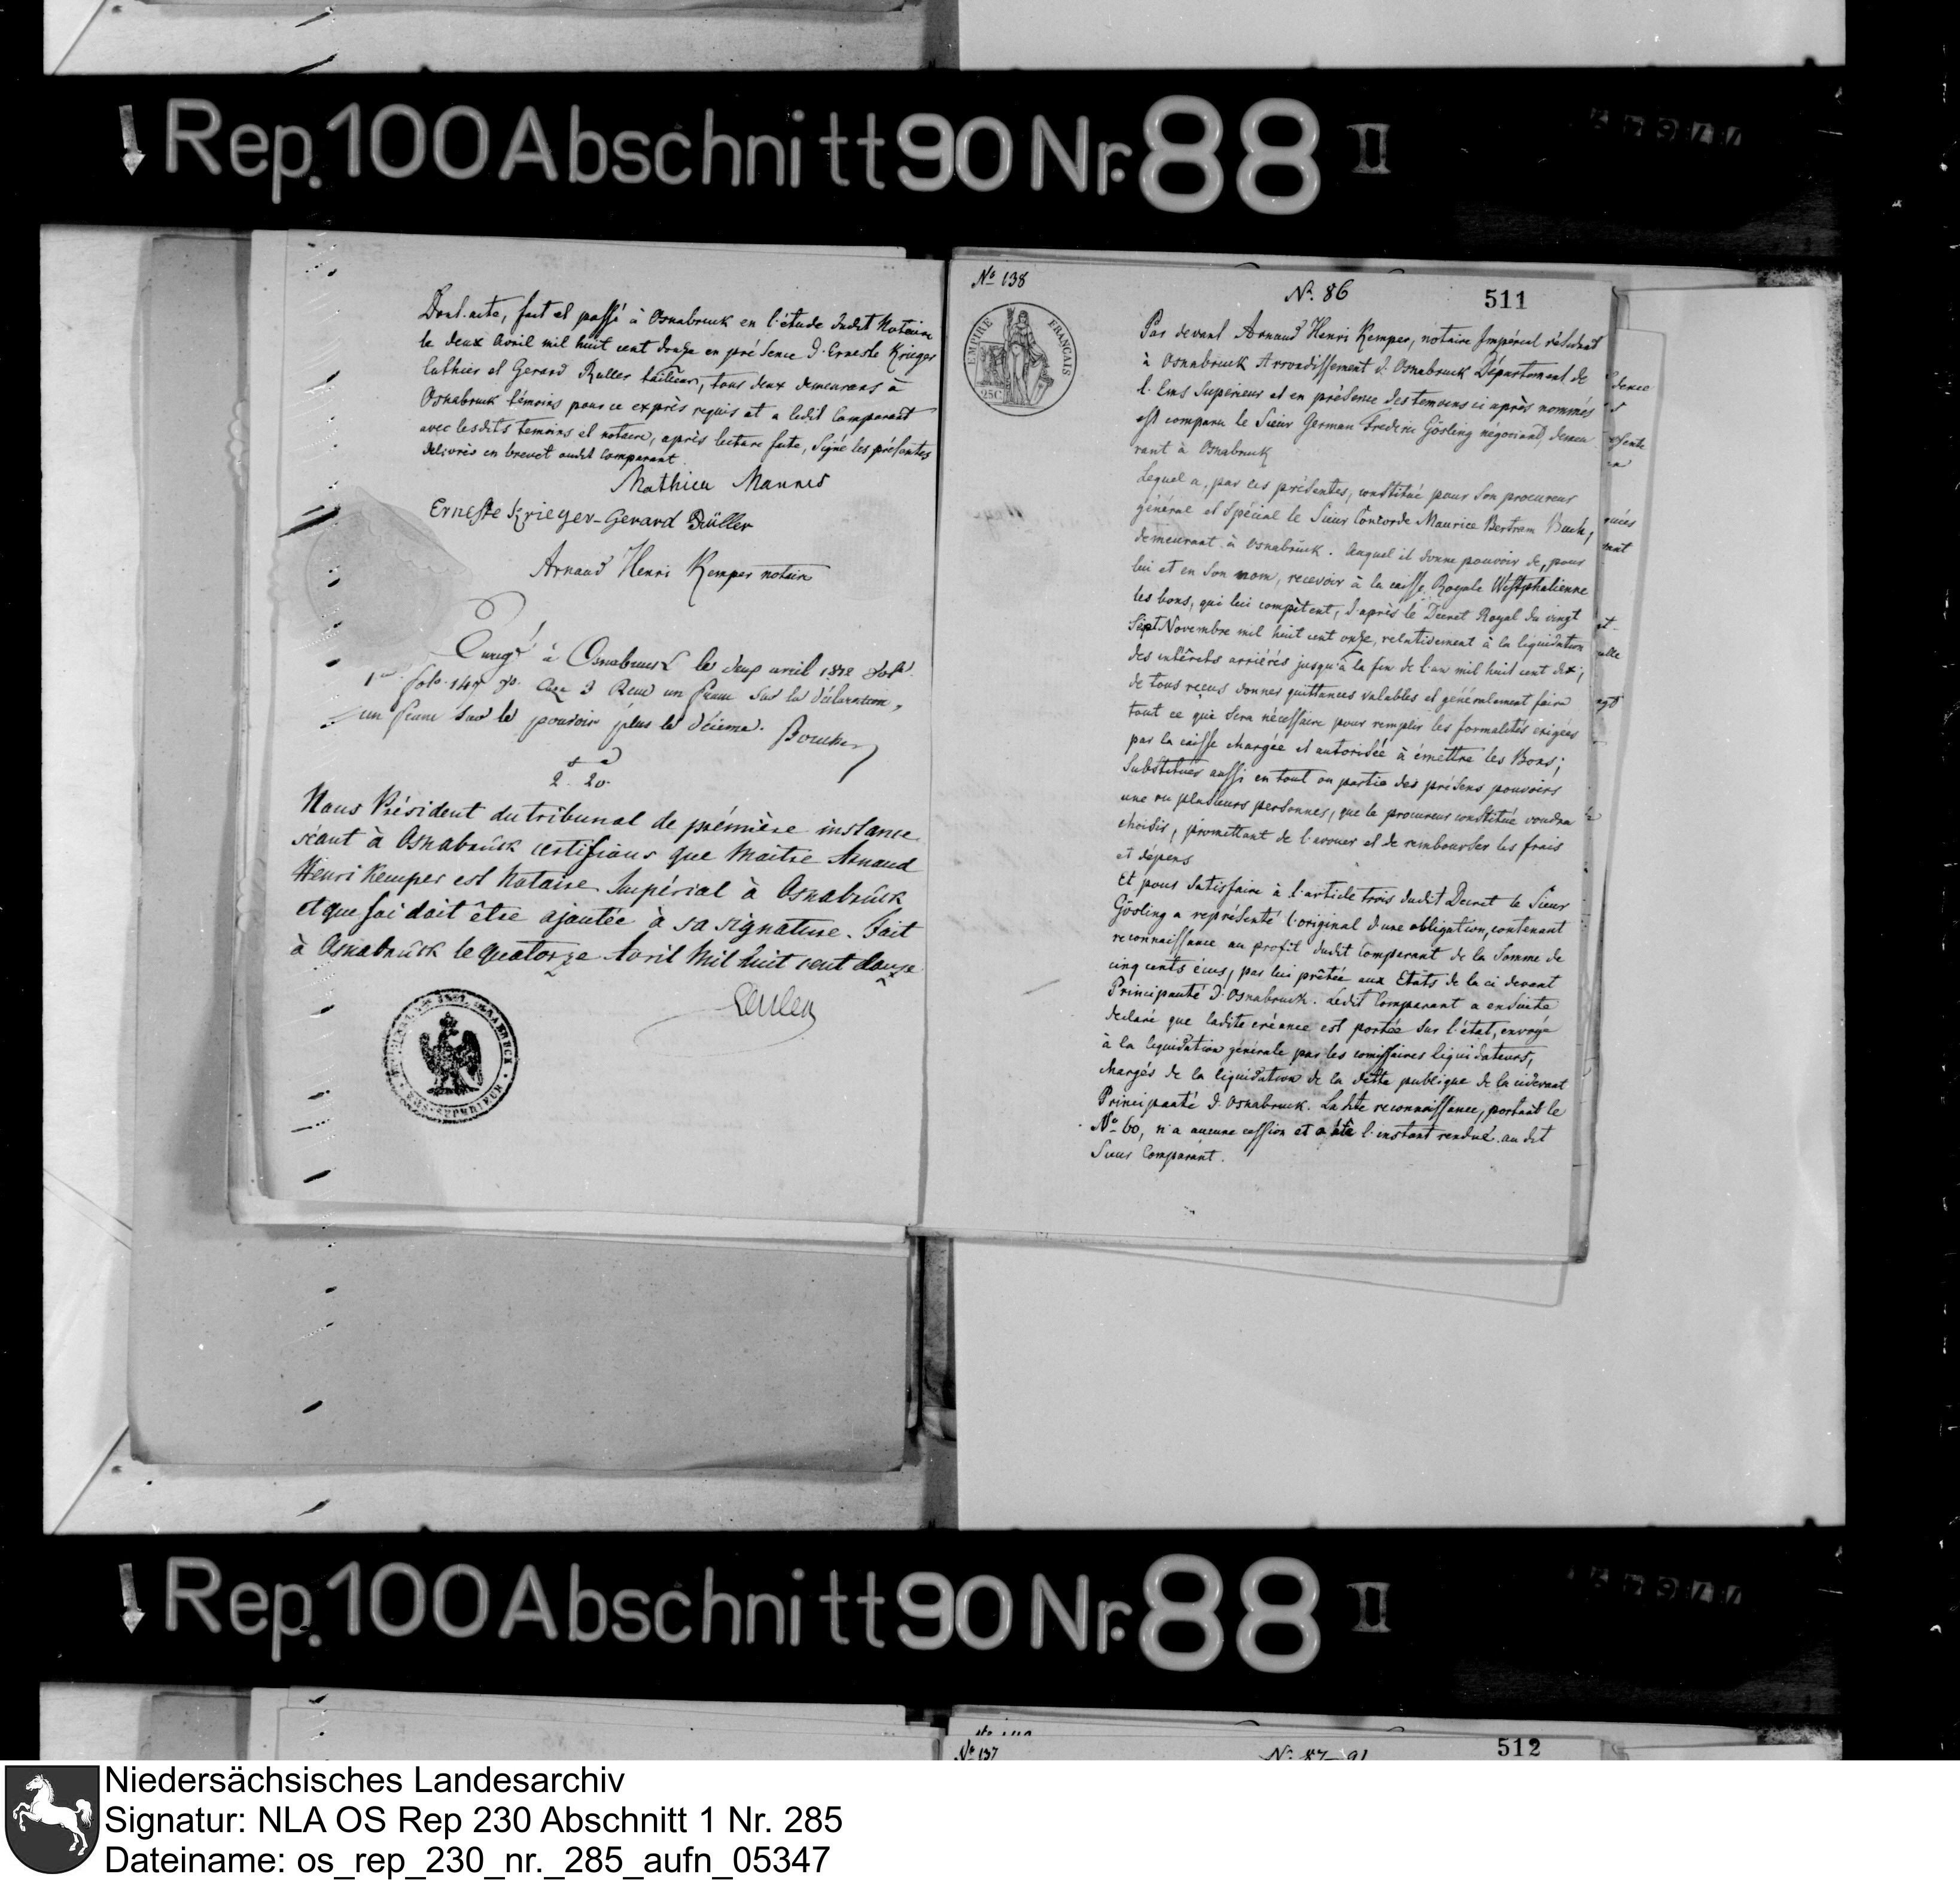 Rep. 100 Abschnitt 90 Nr. 88 II
Dont acte, fait et passé à Osnabruck en l'étude dudit Notaire
le deux Avril mil huit cent douze en présence d. Erneste Krieger
luthier et Gerard Ruller tailleur, tous deux demeurans à
Osnabruck témoins pour ce exprès requis et a ledit Comparant
avec lesdits temoins et notaire, après lecture faite, signé les présentes
delivrés en brevet audit Comparant.
Mathieu Mannes
Erneste Krieger - Gerard Rüller
Arnaud Henri Kemper notaire
à Osnabruck le deux avril 1812
folo. 147 Case 3 Recu un franc sur la déclaration,
un franc sur le pouvoir plus le décime.
2. 20.
Nous Président du tribunal de prémière instance
séant à Osnabrück certifions que Maitre Arnaud
Henri Kemper est Notaire Impérial à Osnabrück
et que foi doit être ajoutée à sa signature. Fait
à Osnabrück le quatorze Avril Mil huit cent douze
No 138
No. 86
511
EMPIRE FRANÇAIS
25C
Par devant Arnaud Henri Kemper, notaire Impérial résidant
à Osnabruck Arrondissement d. Osnabruck Département de
l. Ems Superieur et en présence des temoins ci après nommés
est comparu le Sieur German Frederic Gösling négociant, demeu
rant à Osnabruck
Lequel a, par ces présentes, constitué pour son procureur
général et spécial le Sieur Concorde Maurice Bertram Buck,
demeurant à Osnabrück. auquel il donne pouvoir de, pour
lui et en son nom, recevoir à la caisse Royale Westphalienne
les bons, qui lui compètent, d'après le Decret Royal du vingt
Sept Novembre mil huit cent onze, relativement à la liquidation
des intérets arriérés jusqu'à la fin de l'an mil huit cent dix;
de tous reçus donner quittances valables et généralement faire
tout ce que sera nécessaire pour remplir les formalités exigées
par la caisse chargée et autorisée à émettre les Bons;
Substituer aussi en tout ou partie des présens pouvoirs
une ou plusieurs personnes, que le procureur constitué voudra
choisir, promettant de l'avouer et de rembourser les frais
et dépens
Et pour satisfaire à l'article trois dudit Decret le Sieur
Gösling a représenté l'original d'une obligation, contenant
reconnaissance au profit dudit Comparant de la Somme de
cinq cents écus, par lui prêtée aux Etats de la ci devant
Principauté d. Osnabruck. Ledit Comparant a ensuite
declaré que ladite créance est portée sur l'état, envoyé
à la liquidation générale par les comissaires liquidateurs,
chargés de la liquidation de la dette publique de la cidevant
Principauté d. Osnabruck. Ladite reconnaissance, portant le
No. 60, n'a aucune cession et a été l'instant rendue audit
Sieur Comparant.
Rep. 100 Abschnitt 90 Nr. 88 II
No 137
No. 87-91
512
Niedersächsisches Landesarchiv
Signatur: NLA OS Rep 230 Abschnitt 1 Nr. 285
Dateiname: os_rep_230_nr._285_aufn_05347